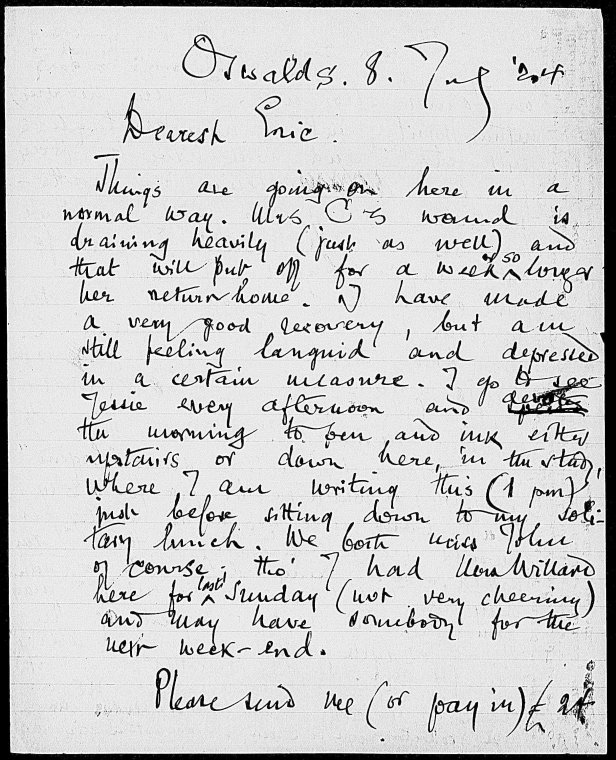 Oswalds. 8. July '24
Dearest Eric.
Things are going on here in a
normal way. Mrs C's wound is
draining heavily (just as well) and
that will put off for a week or so longer
her return home. I have made
a very good recovery, but am
still feeling languid and depressed
in a certain measure. I go to see
Jessie every afternoon and devote
the morning to pen and ink either
upstairs or down here, in the study,
where I am writing this (1 pm)
just before sitting down to my soli-
tary lunch. We both miss John
of course; tho' I had Willard
here for last Sunday (not very cheering)
and may have somebody for the
next week-end.
Please send me (or pay in) £